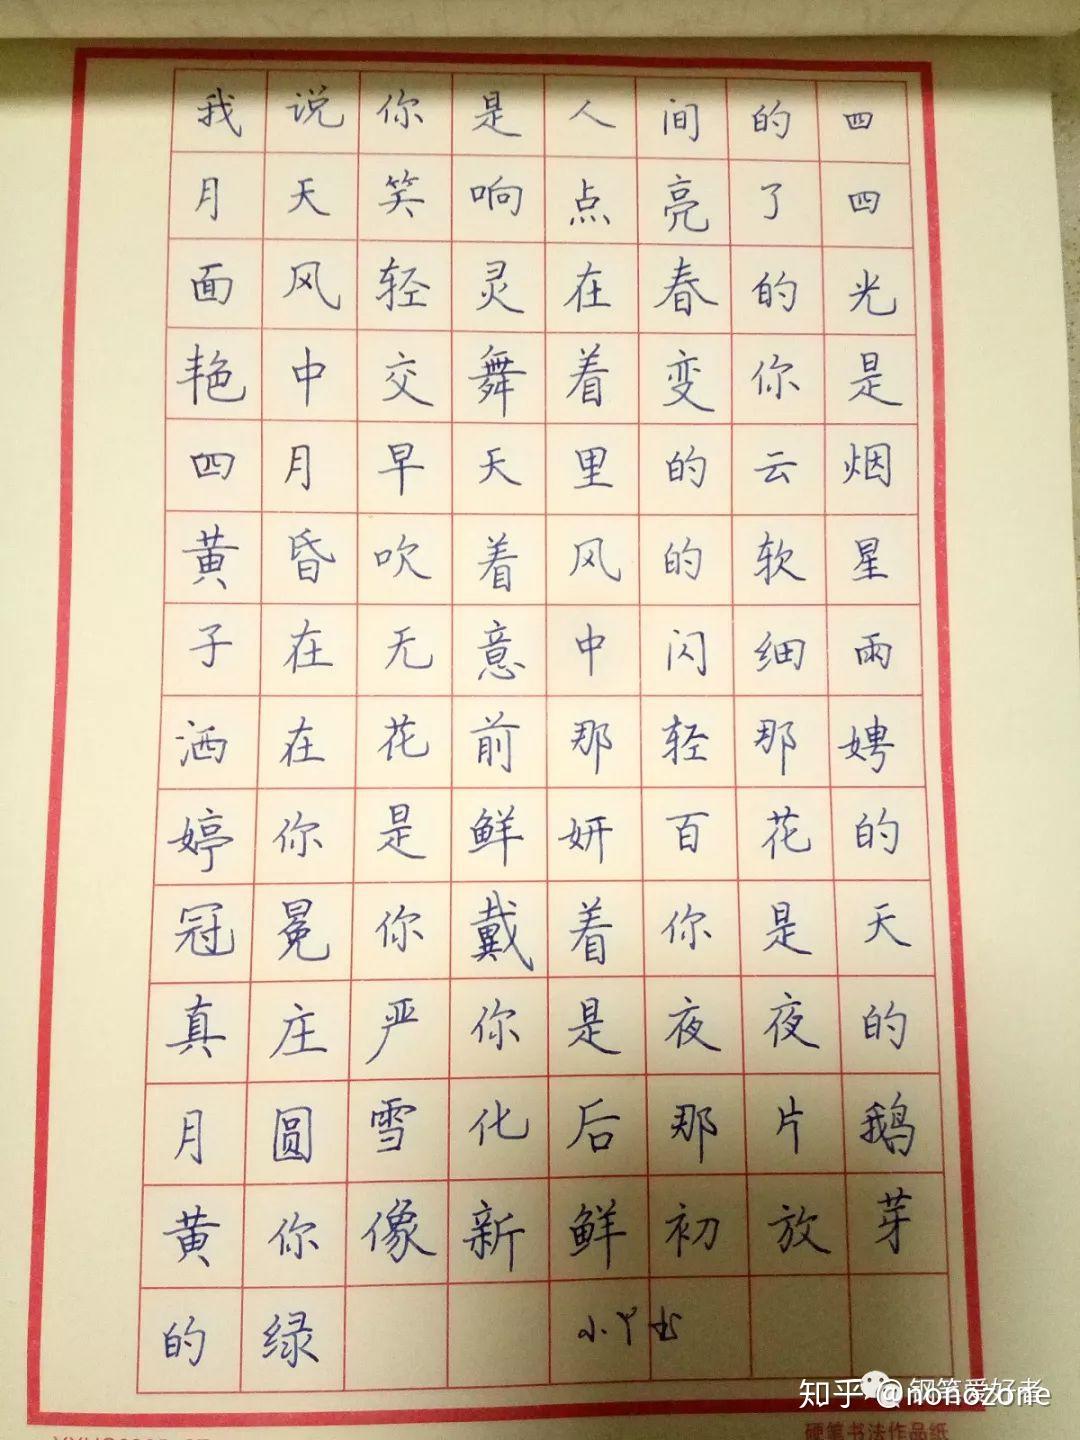 我说你是人间的四
月天笑响点亮了四
面风轻灵在春的光
艳中交舞着变你是
四月早天里的云烟
黄昏吹着风的软星
子在无意中闪细雨
洒在花前那轻那娉
婷你是鲜妍百花的
冠冕你戴着你是天
真庄严你是夜夜的
月圆雪化后那片鹅
黄你像新鲜初放芽
的绿
小丫书
知乎 @nonozone
钢笔爱好者
硬笔书法作品纸